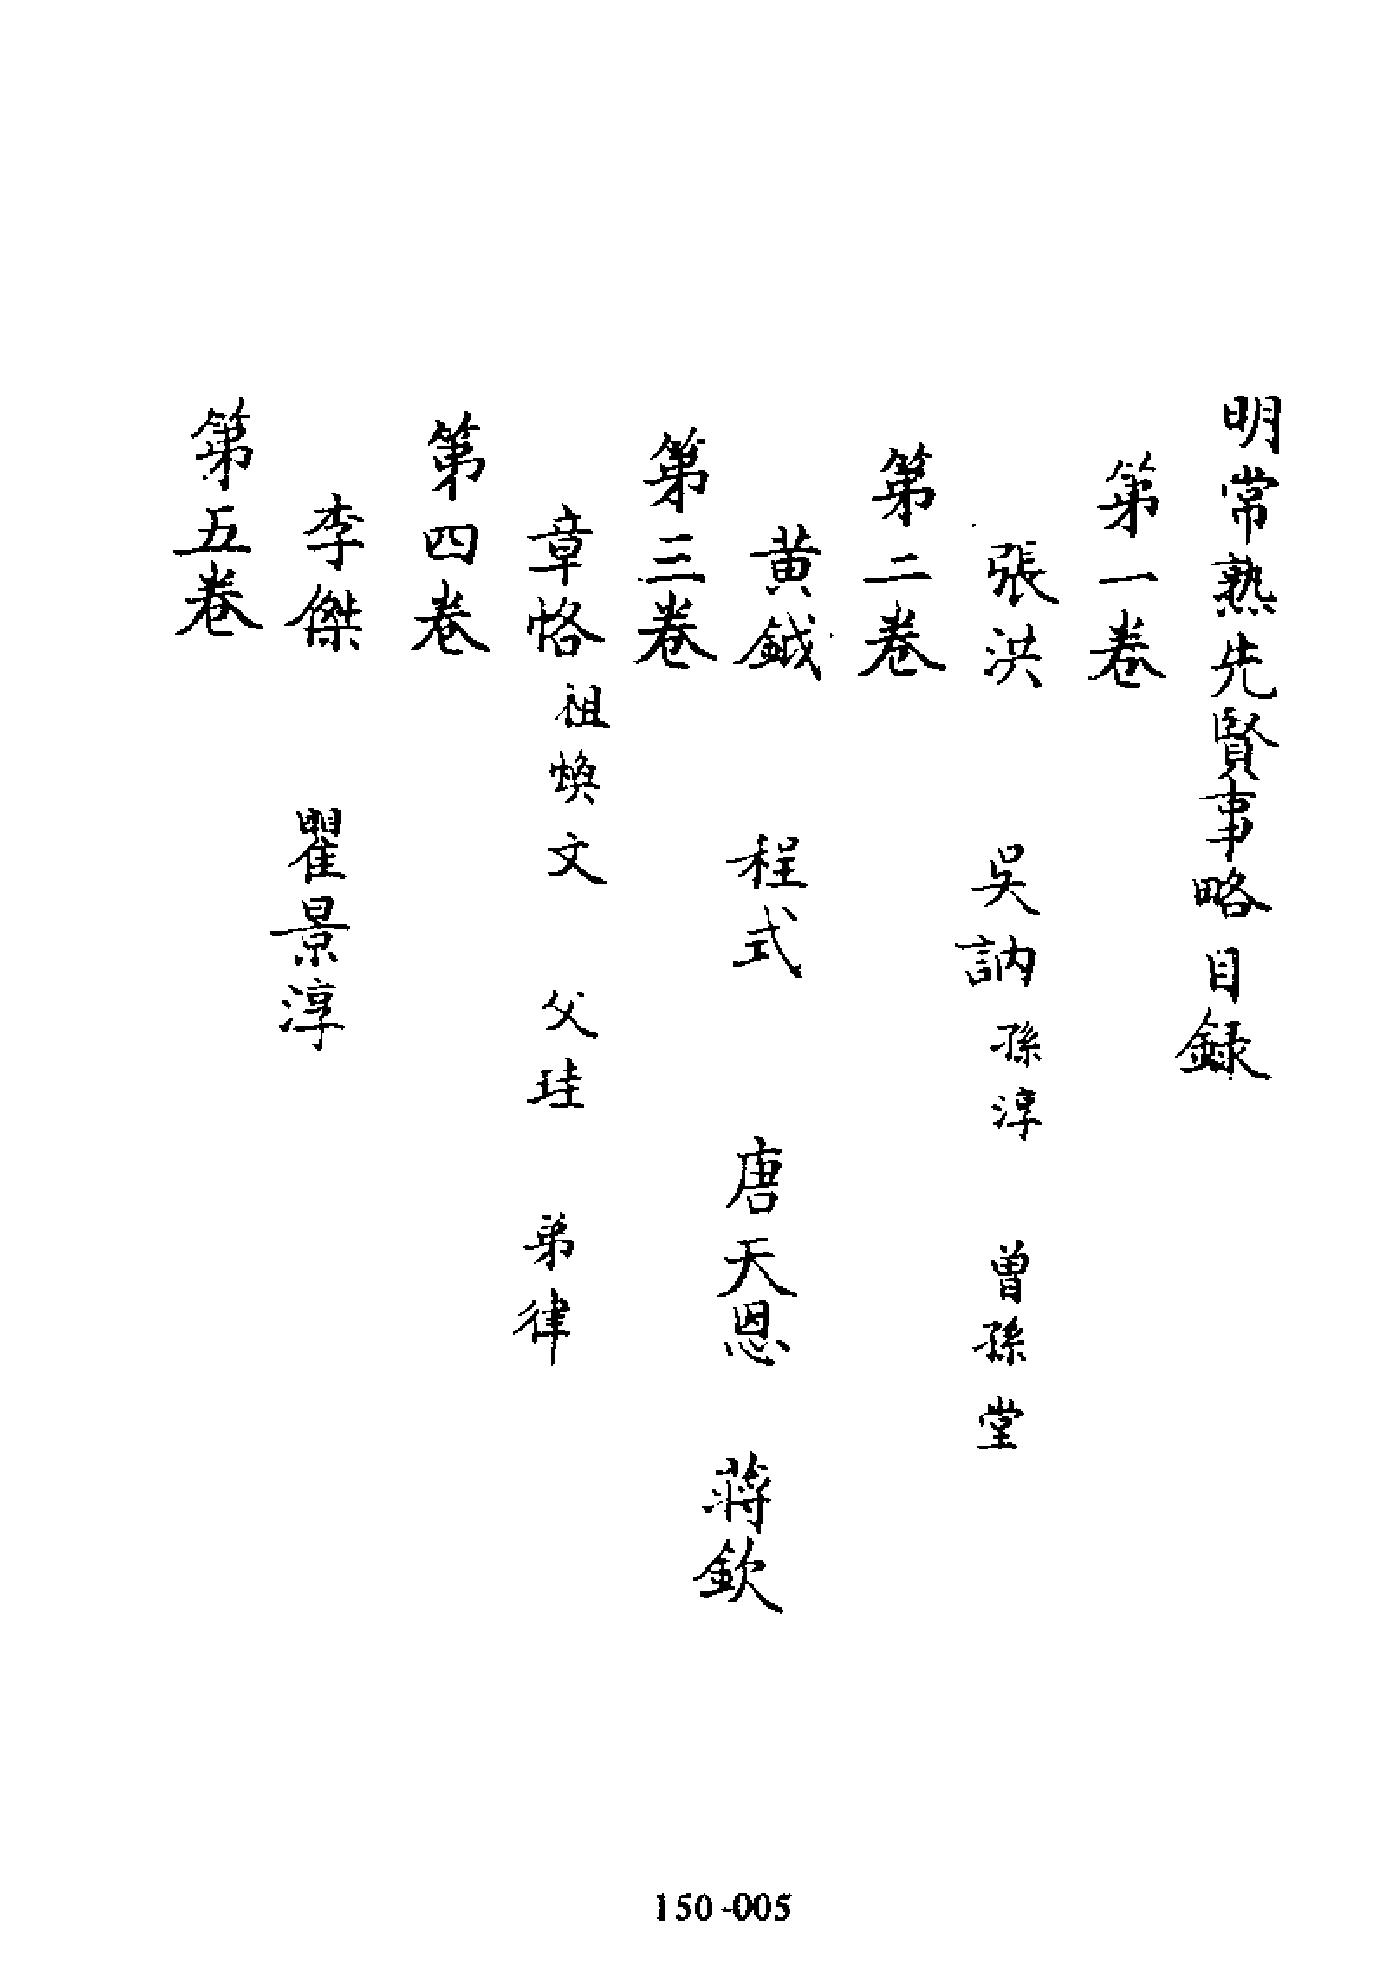 明常熟先賢事略目録
第一卷
張洪　吳訥　孫淳　曾孫堂
第二卷
黄鉞　程式　唐天恩　蔣欽
第三卷
章恪　祖焕文　父珪　弟律
第四卷
李傑　瞿景淳
第五卷
150-005